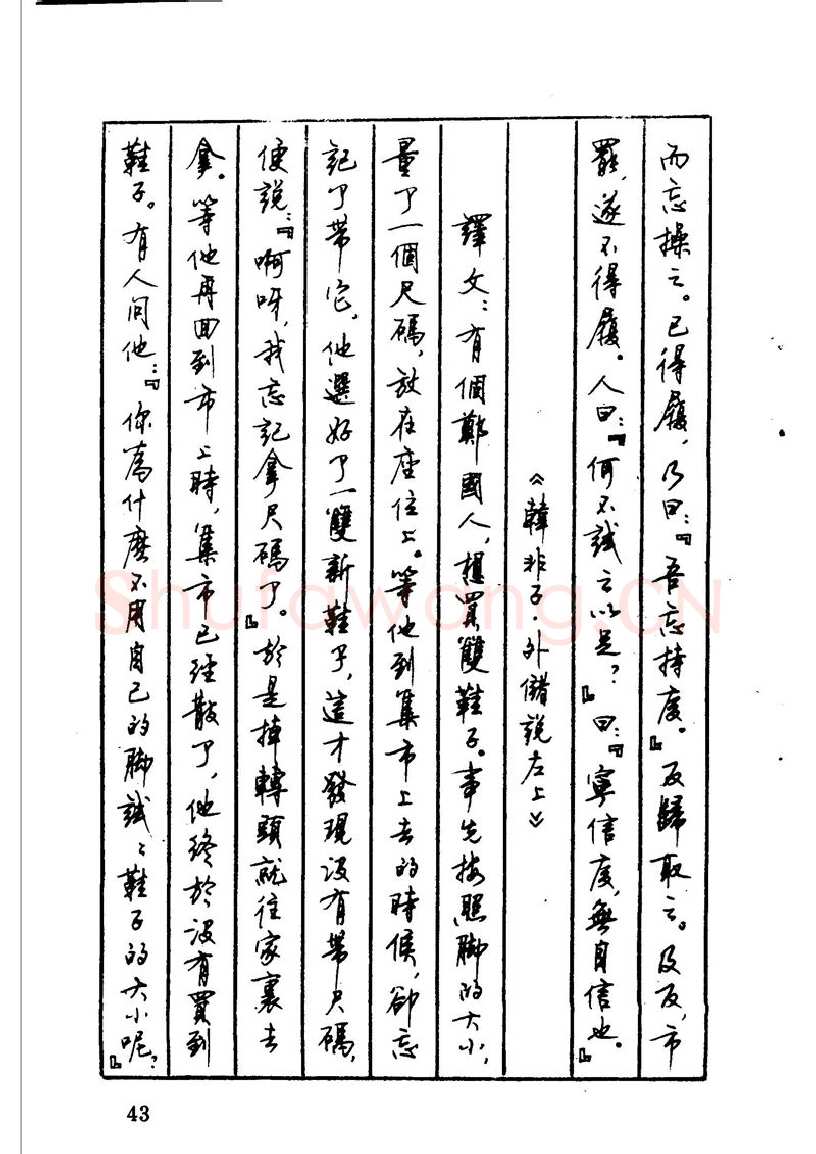 而忘操之。已得履，乃曰：『吾忘持度。』反歸取之。及反，市
罷，遂不得履。人曰：『何不試之以足？』曰：『寧信度，無自信也。』
《韓非子·外儲說左上》
譯文：有個鄭國人，想買雙鞋子。事先按照脚的大小，
量了一個尺碼，放在座位上。等他到集市上去的時候，卻忘
記了帶它。他選好了一雙新鞋子，這才發現没有帶尺碼，
便說：『啊呀，我忘記拿尺碼了。』於是掉轉頭就往家裏去
拿。等他再回到市上時，集市已經散了，他終於没有買到
鞋子。有人问他：『你為什麽不用自己的脚試試鞋子的大小呢？』
43
Shufawang.CN